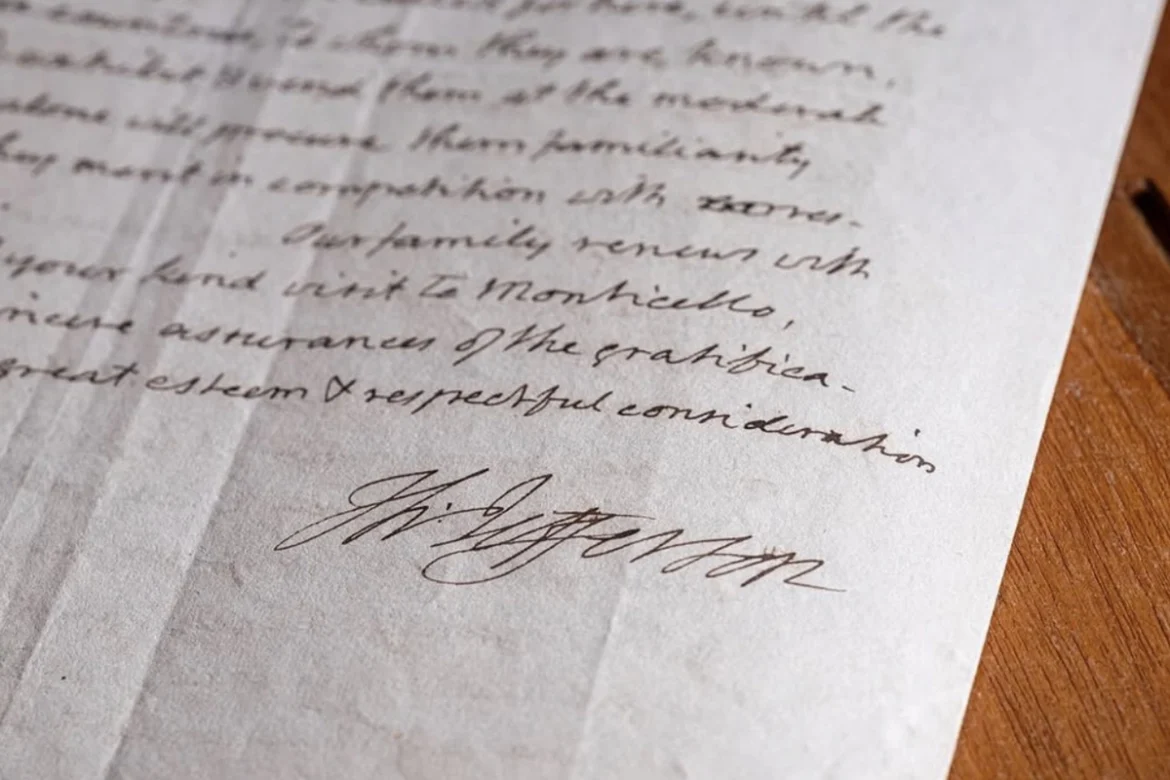 until the
to whom they are known.
vend them at the moderate
alone will procure them familiarity
they merit in competition with
Our family renews with
your kind visit to Monticello,
assurances of the gratifica-
great esteem & respectful consideration
Th: Jefferson